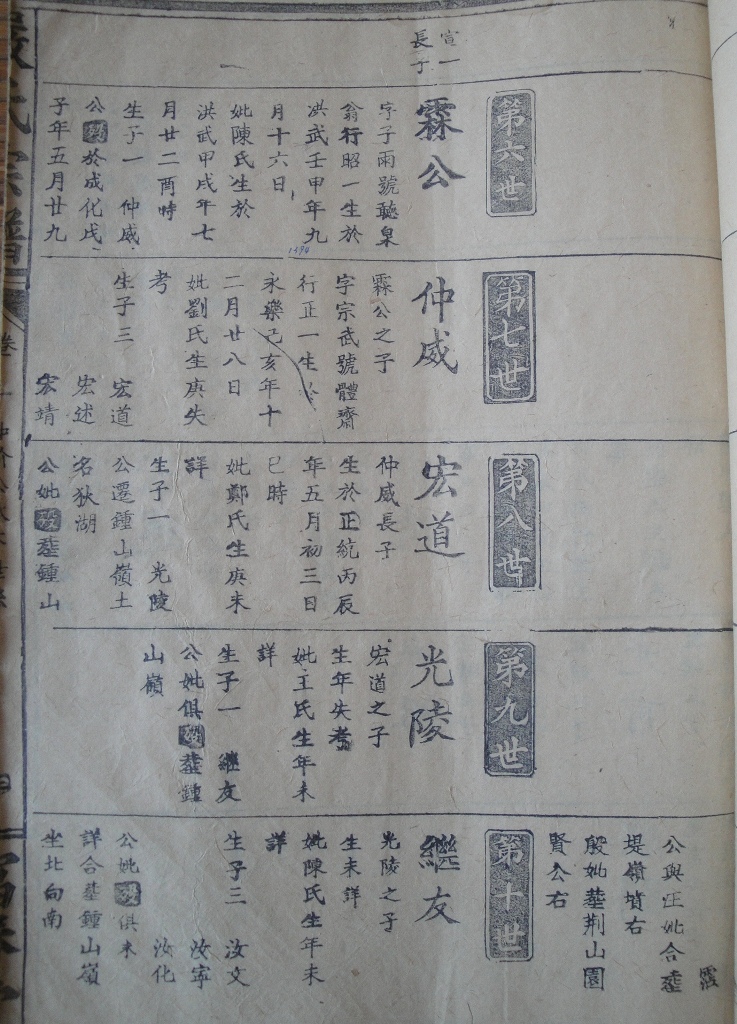 宣一
長子
第六世
霖公
字子雨號聽泉
翁行昭一生於
洪武壬甲年九
月十六日
妣陳氏生於
洪武甲戌年七
月廿二酉時
生子一 仲威
公歿於成化戊
子年五月廿九
1394
第七世
仲威
霖公之子
字宗武號體齋
行正一生於
永樂己亥年十
二月廿八日
妣劉氏生庚失
考
生子三 宏道
宏述
宏靖
第八世
宏道
仲威長子
生於正統丙辰
年五月初三日
巳時
妣鄭氏生庚未
詳
生子一 光陵
公遷鍾山嶺土
名狄湖
公妣歿葬鍾山
第九世
光陵
宏道之子
生年失考
妣王氏生年未
詳
生子一 繼友
公妣俱歿葬鍾
山嶺
公與汪妣合葬
堤嶺墳右
殷妣葬荆山園
賢公右
霑
第十世
繼友
光陵之子
生未詳
妣陳氏生年未
詳
生子三 汝文
汝寧
汝化
公妣歿俱未
詳合葬鍾山嶺
坐北向南